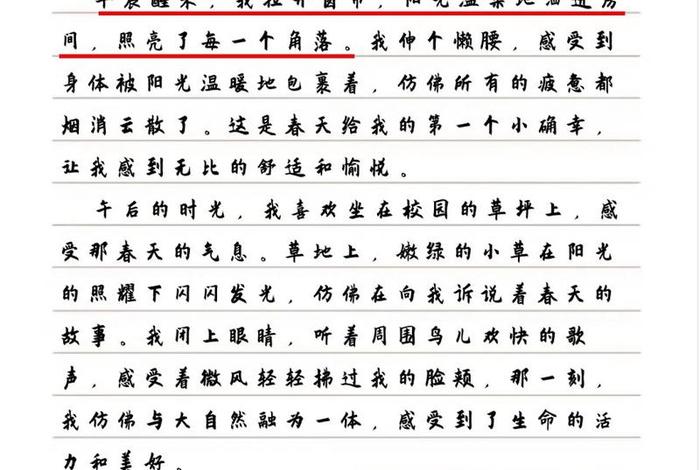 晨醒来，我拉开窗帘，阳光温柔地洒进房
间，照亮了每一个角落。我伸个懒腰，感受到
身体被阳光温暖地包裹着，仿佛所有的疲惫都
烟消云散了。这是春天给我的第一个小确幸，
让我感到无比的舒适和愉悦。
午后的时光，我喜欢坐在校园的草坪上，感
受那春天的气息。草地上，嫩绿的小草在阳光
的照耀下闪闪发光，仿佛在向我诉说着春天的
故事。我闭上眼睛，听着周围鸟儿欢快的歌
声，感受着微风轻轻拂过我的脸颊，那一刻，
我仿佛与大自然融为一体，感受到了生命的活
力和美好。